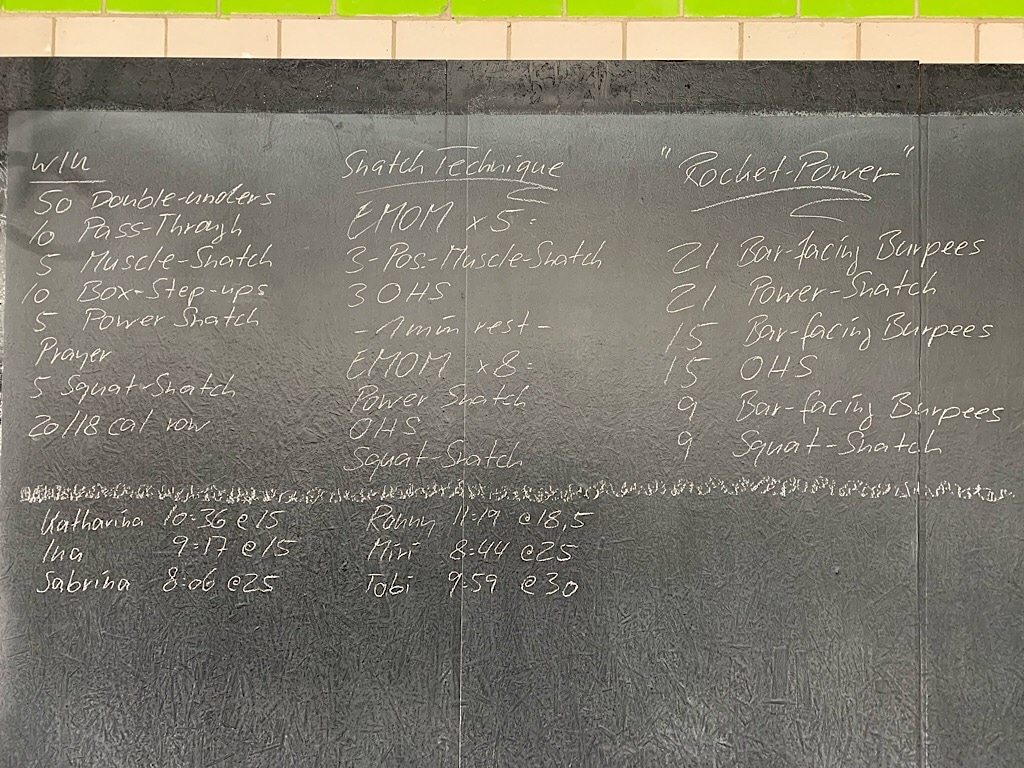 W/U
50 Double-unders
10 Pass-Through
5 Muscle-Snatch
10 Box-Step-ups
5 Power Snatch
Prayer
5 Squat-Snatch
20/18 cal row
Snatch Technique
EMOM x 5:
3-Pos.-Muscle-Snatch
3 OHS
- 1 min rest -
EMOM x8:
Power Snatch
OHS
Squat-Snatch
"Rocket-Power"
21 Bar-facing Burpees
21 Power-Snatch
15 Bar-facing Burpees
15 OHS
9 Bar-facing Burpees
9 Squat-Snatch
Katharina 10:36 @15
Ina 9:17 @15
Sabrina 8:06 @25
Ronny 11:19 @18,5
Miri 8:44 @25
Tobi 9:59 @30